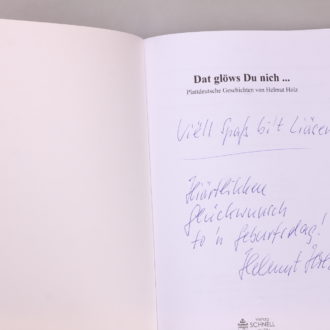 Dat glöws Du nich ...
Plattdeutsche Geschichten von Helmut Holz
Viëll Spaß bi't Liäsen
Hiärtlichen
Glückwunsch
to'n Geburtsdag!
Helmut
VERLAG
SCHNELL